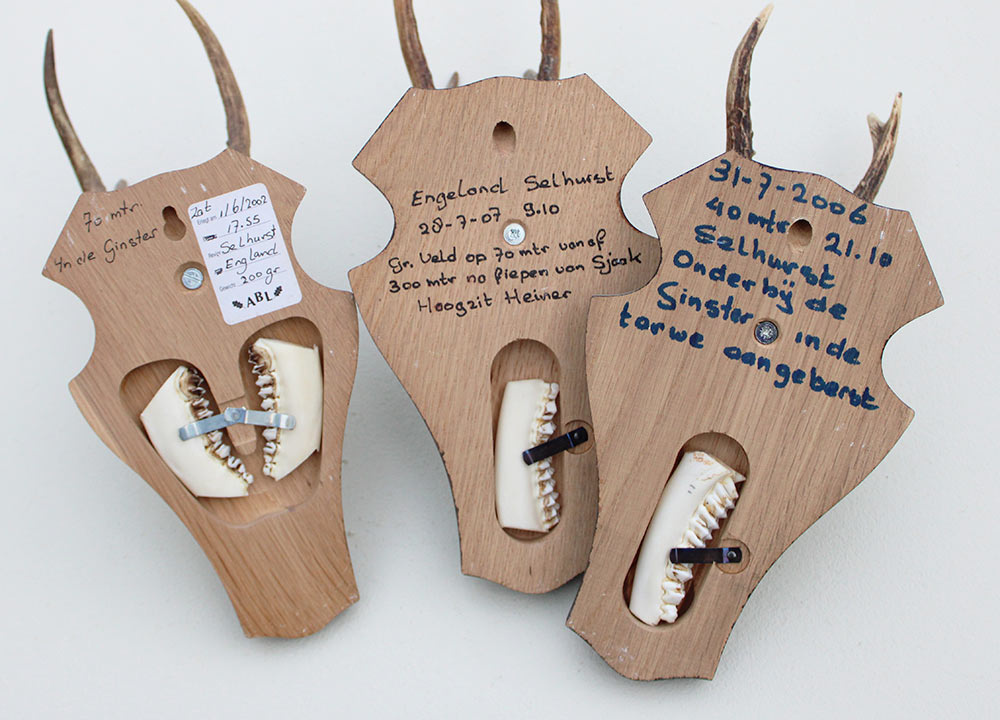 70 mtr.
In de Ginster
Zat
1/6/2002
17.55
Selhurst
England
Gewicht 200 gr.
ABL
Engeland Selhurst
28-7-07 9.10
Gr. Veld op 70 mtr vanaf
300 mtr na fiepen van Sjaak
Hoogzit Heiner
31-7-2006
40 mtr 21.10
Selhurst
Onder bij de
Sinster in de
tarwe aangeberst